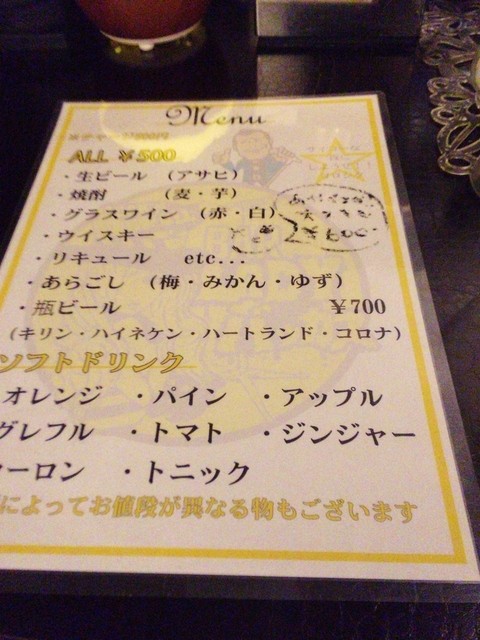 Menu
ALL ¥500
・生ビール (アサヒ)
・焼酎 (麦・芋)
・グラスワイン (赤・白)
・ウイスキー
・リキュール etc...
・あらごし (梅・みかん・ゆず)
・瓶ビール ¥700
(キリン・ハイネケン・ハートランド・コロナ)
ソフトドリンク
オレンジ ・パイン ・アップル
グレフル ・トマト ・ジンジャー
ーロン ・トニック
によってお値段が異なる物もございます